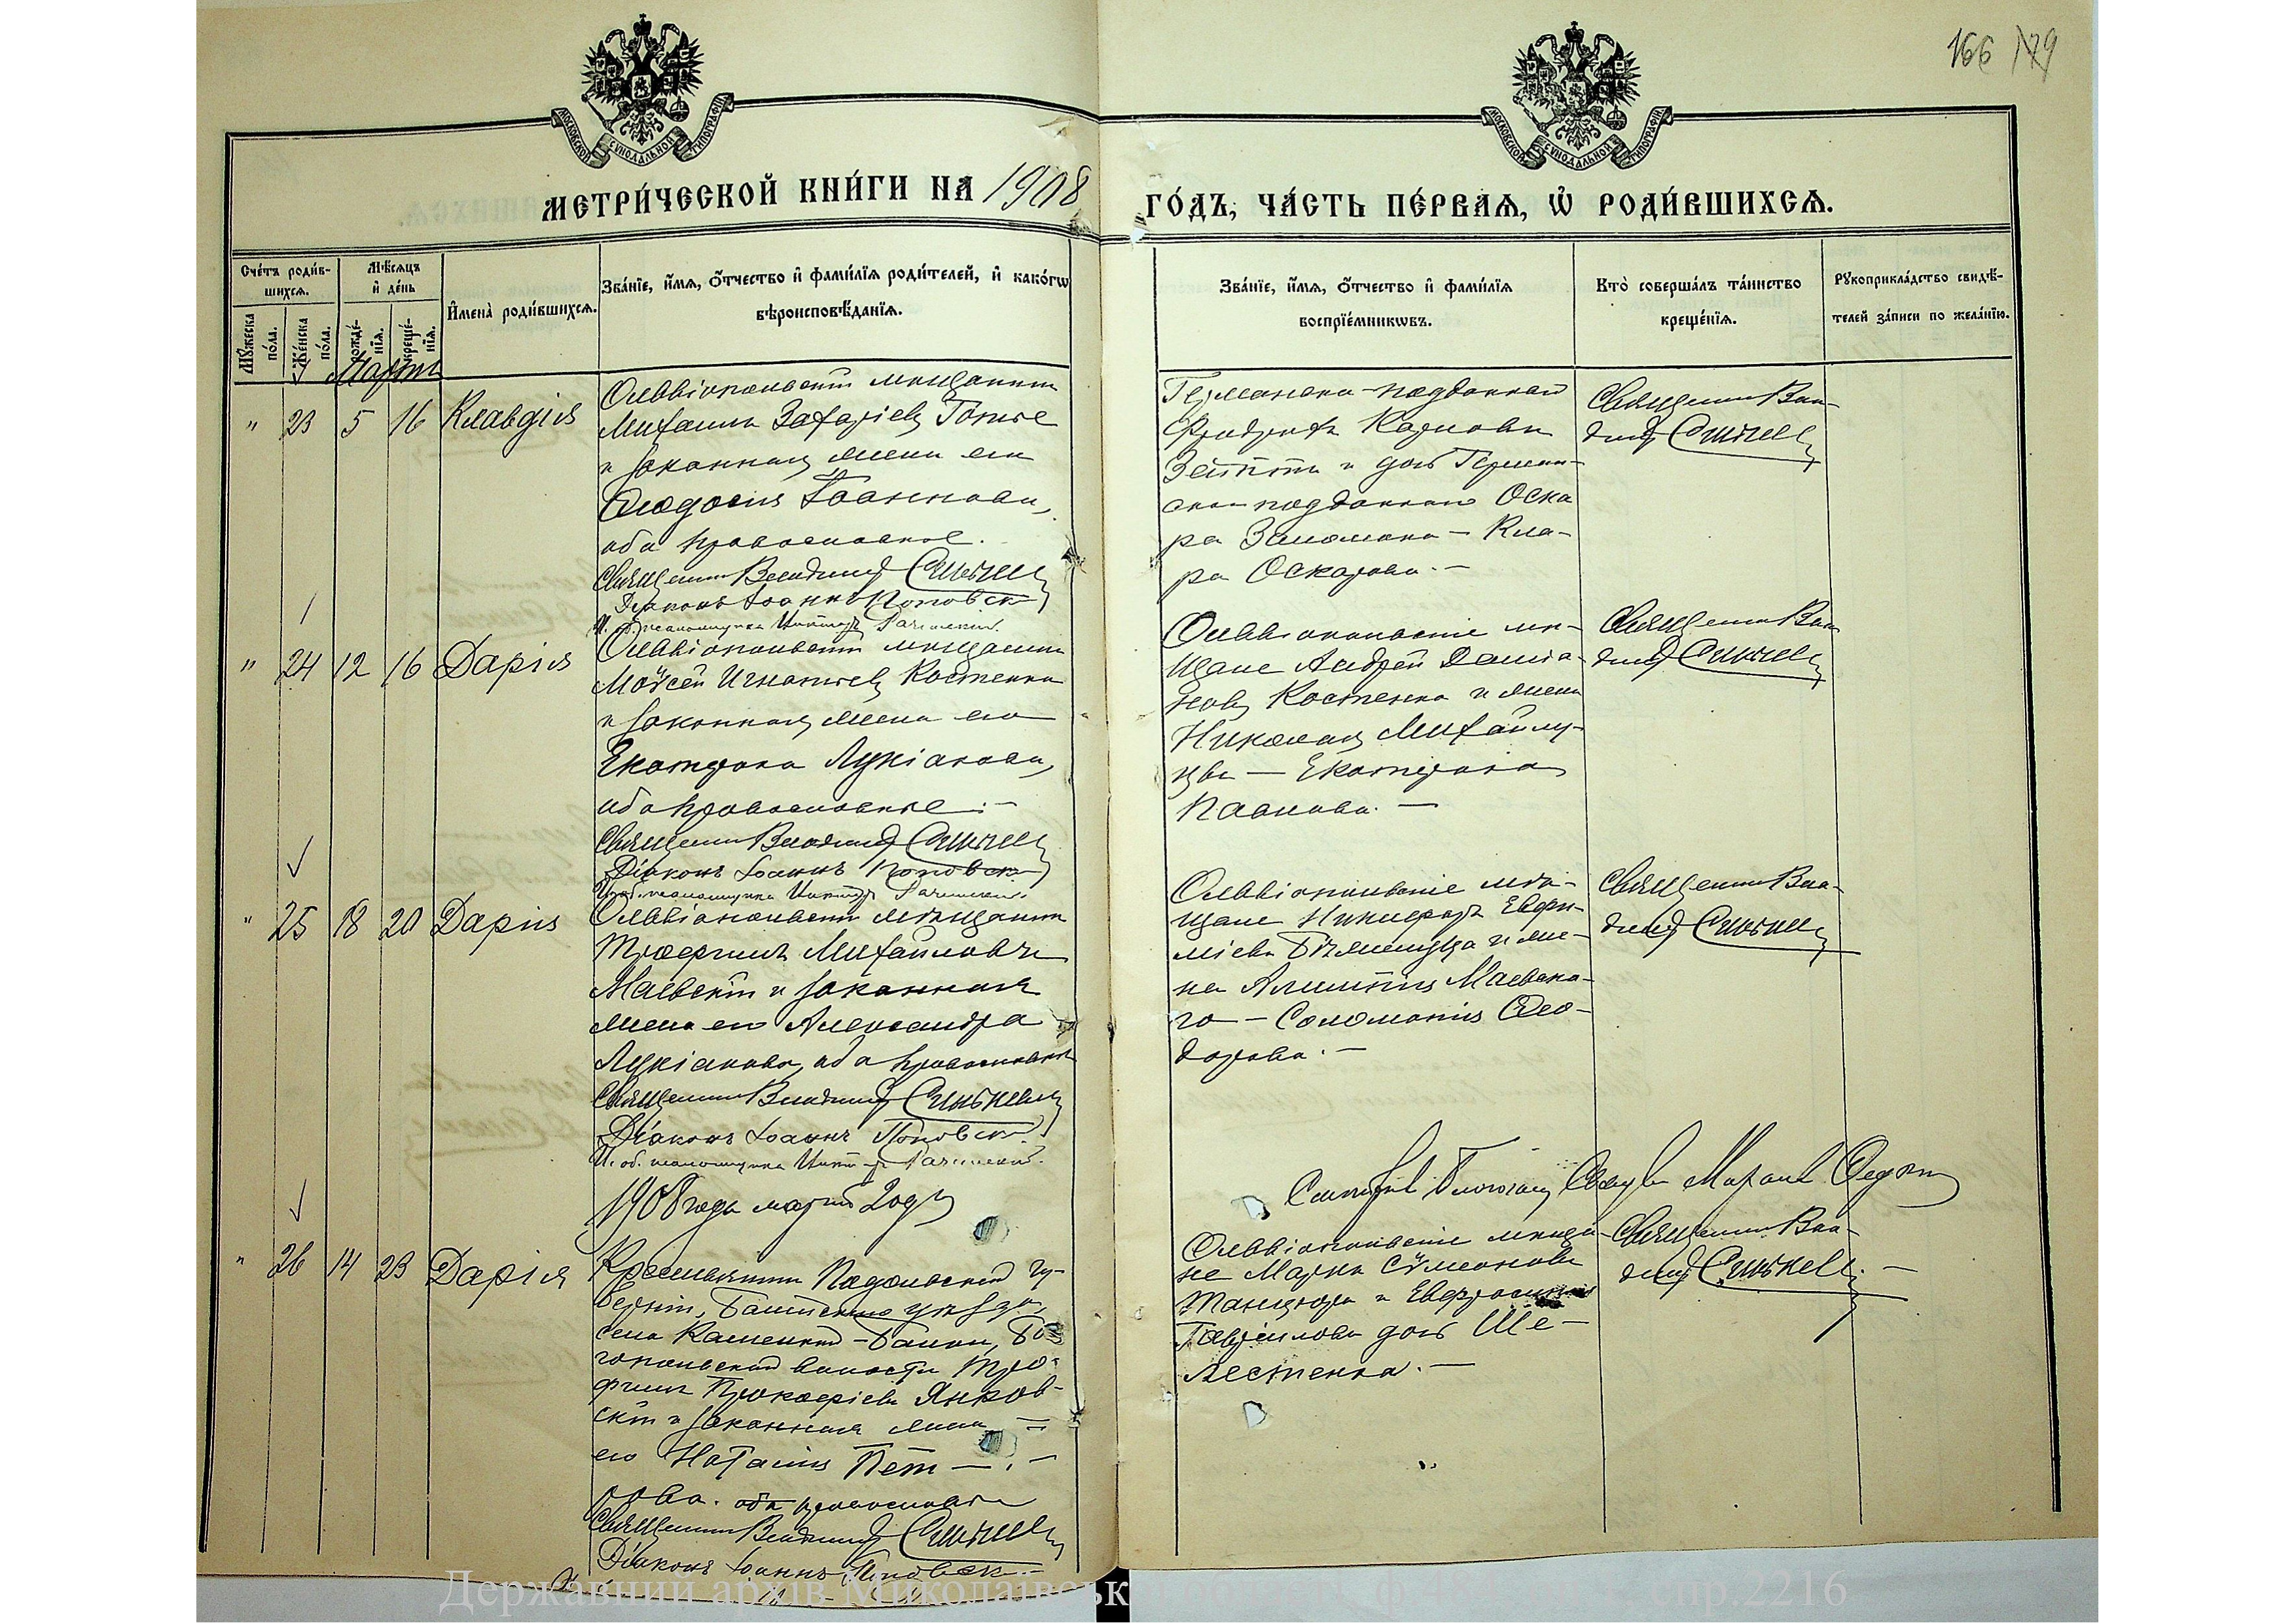 166 179
МОСКОВСКОЙ СѴНОДАЛЬНОЙ ТИПОГРАФІИ
МОСКОВСКОЙ СѴНОДАЛЬНОЙ ТИПОГРАФІИ
МЕТРИ́ЧЕСКОЙ КНИ́ГИ НА 1908 ГО́ДЪ, ЧА́СТЬ ПЕ́РВАѦ, Ѡ҆ РОДИ́ВШИХСѦ.
Сче́тъ роди́в-
шихсѧ.
Мꙋ́жеска по́ла.
Же́нска по́ла.
Мѣ́сѧцъ
и҆ де́нь
рожде́-
нїѧ.
креще́-
нїѧ.
И҆мена̀ роди́вшихсѧ.
Зва́нїе, и҆́мѧ, ѻ҆́тчество и҆ фами́лїѧ роди́телей, и҆ како́гѡ
вѣроисповѣ́данїѧ.
Зва́нїе, и҆́мѧ, ѻ҆́тчество и҆ фами́лїѧ
воспрїе́мникѡвъ.
Кто̀ соверша́лъ та́инство
креще́нїѧ.
Рꙋкоприкла́дство свидѣ́-
телей за́писи по жела́нїю.
Мартъ
" 23 5 16 Клавдія
Ольвіопольскій мѣщанинъ
Михаилъ Захаріевъ
и законная жена его
Ѳеодосія Іоаннова,
оба православные.
Священникъ Владимір Синькев
Діаконъ Іоаннъ Поповск
И. об. псаломщика Виктор
Германско-подданный
Фридрихъ Карловъ
и дочь Герман-
ско-подданнаго Оска
ра — Кла-
ра Оскарова. —
Священникъ Вла-
димір Синькев
" 24 12 16 Дарія
Ольвіопольскій мѣщанинъ
Моѵсей Игнатьевъ Костенко
и законная жена его
Екатерина Лукіанова,
оба православные. —
Священникъ Владимір Синькев
Діаконъ Іоаннъ Поповск
И. об. псаломщика Виктор
Ольвіопольскіе мѣ-
щане Андрей Даміа-
новъ Костенко и жена
Николая Михайлу-
цы — Екатерина
Павлова. —
Священникъ Вла
димір Синькев
" 25 18 20 Дарія
Ольвіопольскій мѣщанинъ
Трофимъ Михайловъ
Маевскій и законная
жена его Александра
Лукіанова, оба православные
Священникъ Владимір Синькев
Діаконъ Іоаннъ Поповск
И. об. псаломщика Виктор
1908 года марта 20 дн
Ольвіопольскіе мѣ-
щане Никифоръ Евфи-
міевъ и же-
на Маевска-
го — Соломонія Ѳео-
дорова. —
Священникъ Вла-
димір Синькев
" 26 14 23 Дарія
Крестьянинъ Подольской гу-
берніи, Балтскаго уѣзда,
села Каменной-Балки, Бо
гопольской волости Тро-
фимъ Прокофіевъ Янков-
скій и законная жена
его Наталія Пет — . —
рова. оба православные
Священникъ Владимір Синькев
Діаконъ Іоаннъ Поповск
Ольвіопольскіе мѣща-
не Марко Сѵмеоновъ
и Евфросинія
Гавріилова дочь Ше-
лестенко. —
Священникъ Вла-
димір Синькев
Державний архів Миколаївськ
спр.2216